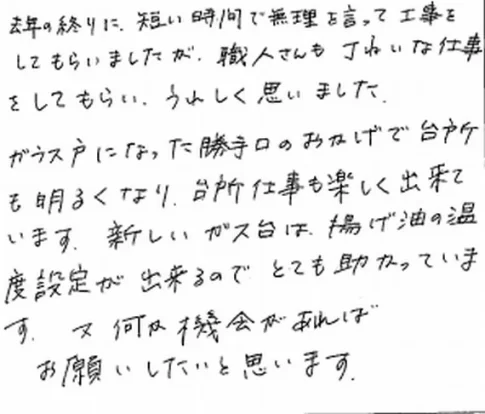 去年の終りに、短い時間で無理を言って工事を
してもらいましたが、職人さんも丁ねいな仕事
をしてもらい、うれしく思いました。
ガラス戸になった勝手口のおかげで台所
も明るくなり、台所仕事も楽しく出来て
います。新しいガス台は、揚げ油の温
度設定が出来るのでとても助かっていま
す。又何か機会があれば
お願いしたいと思います。